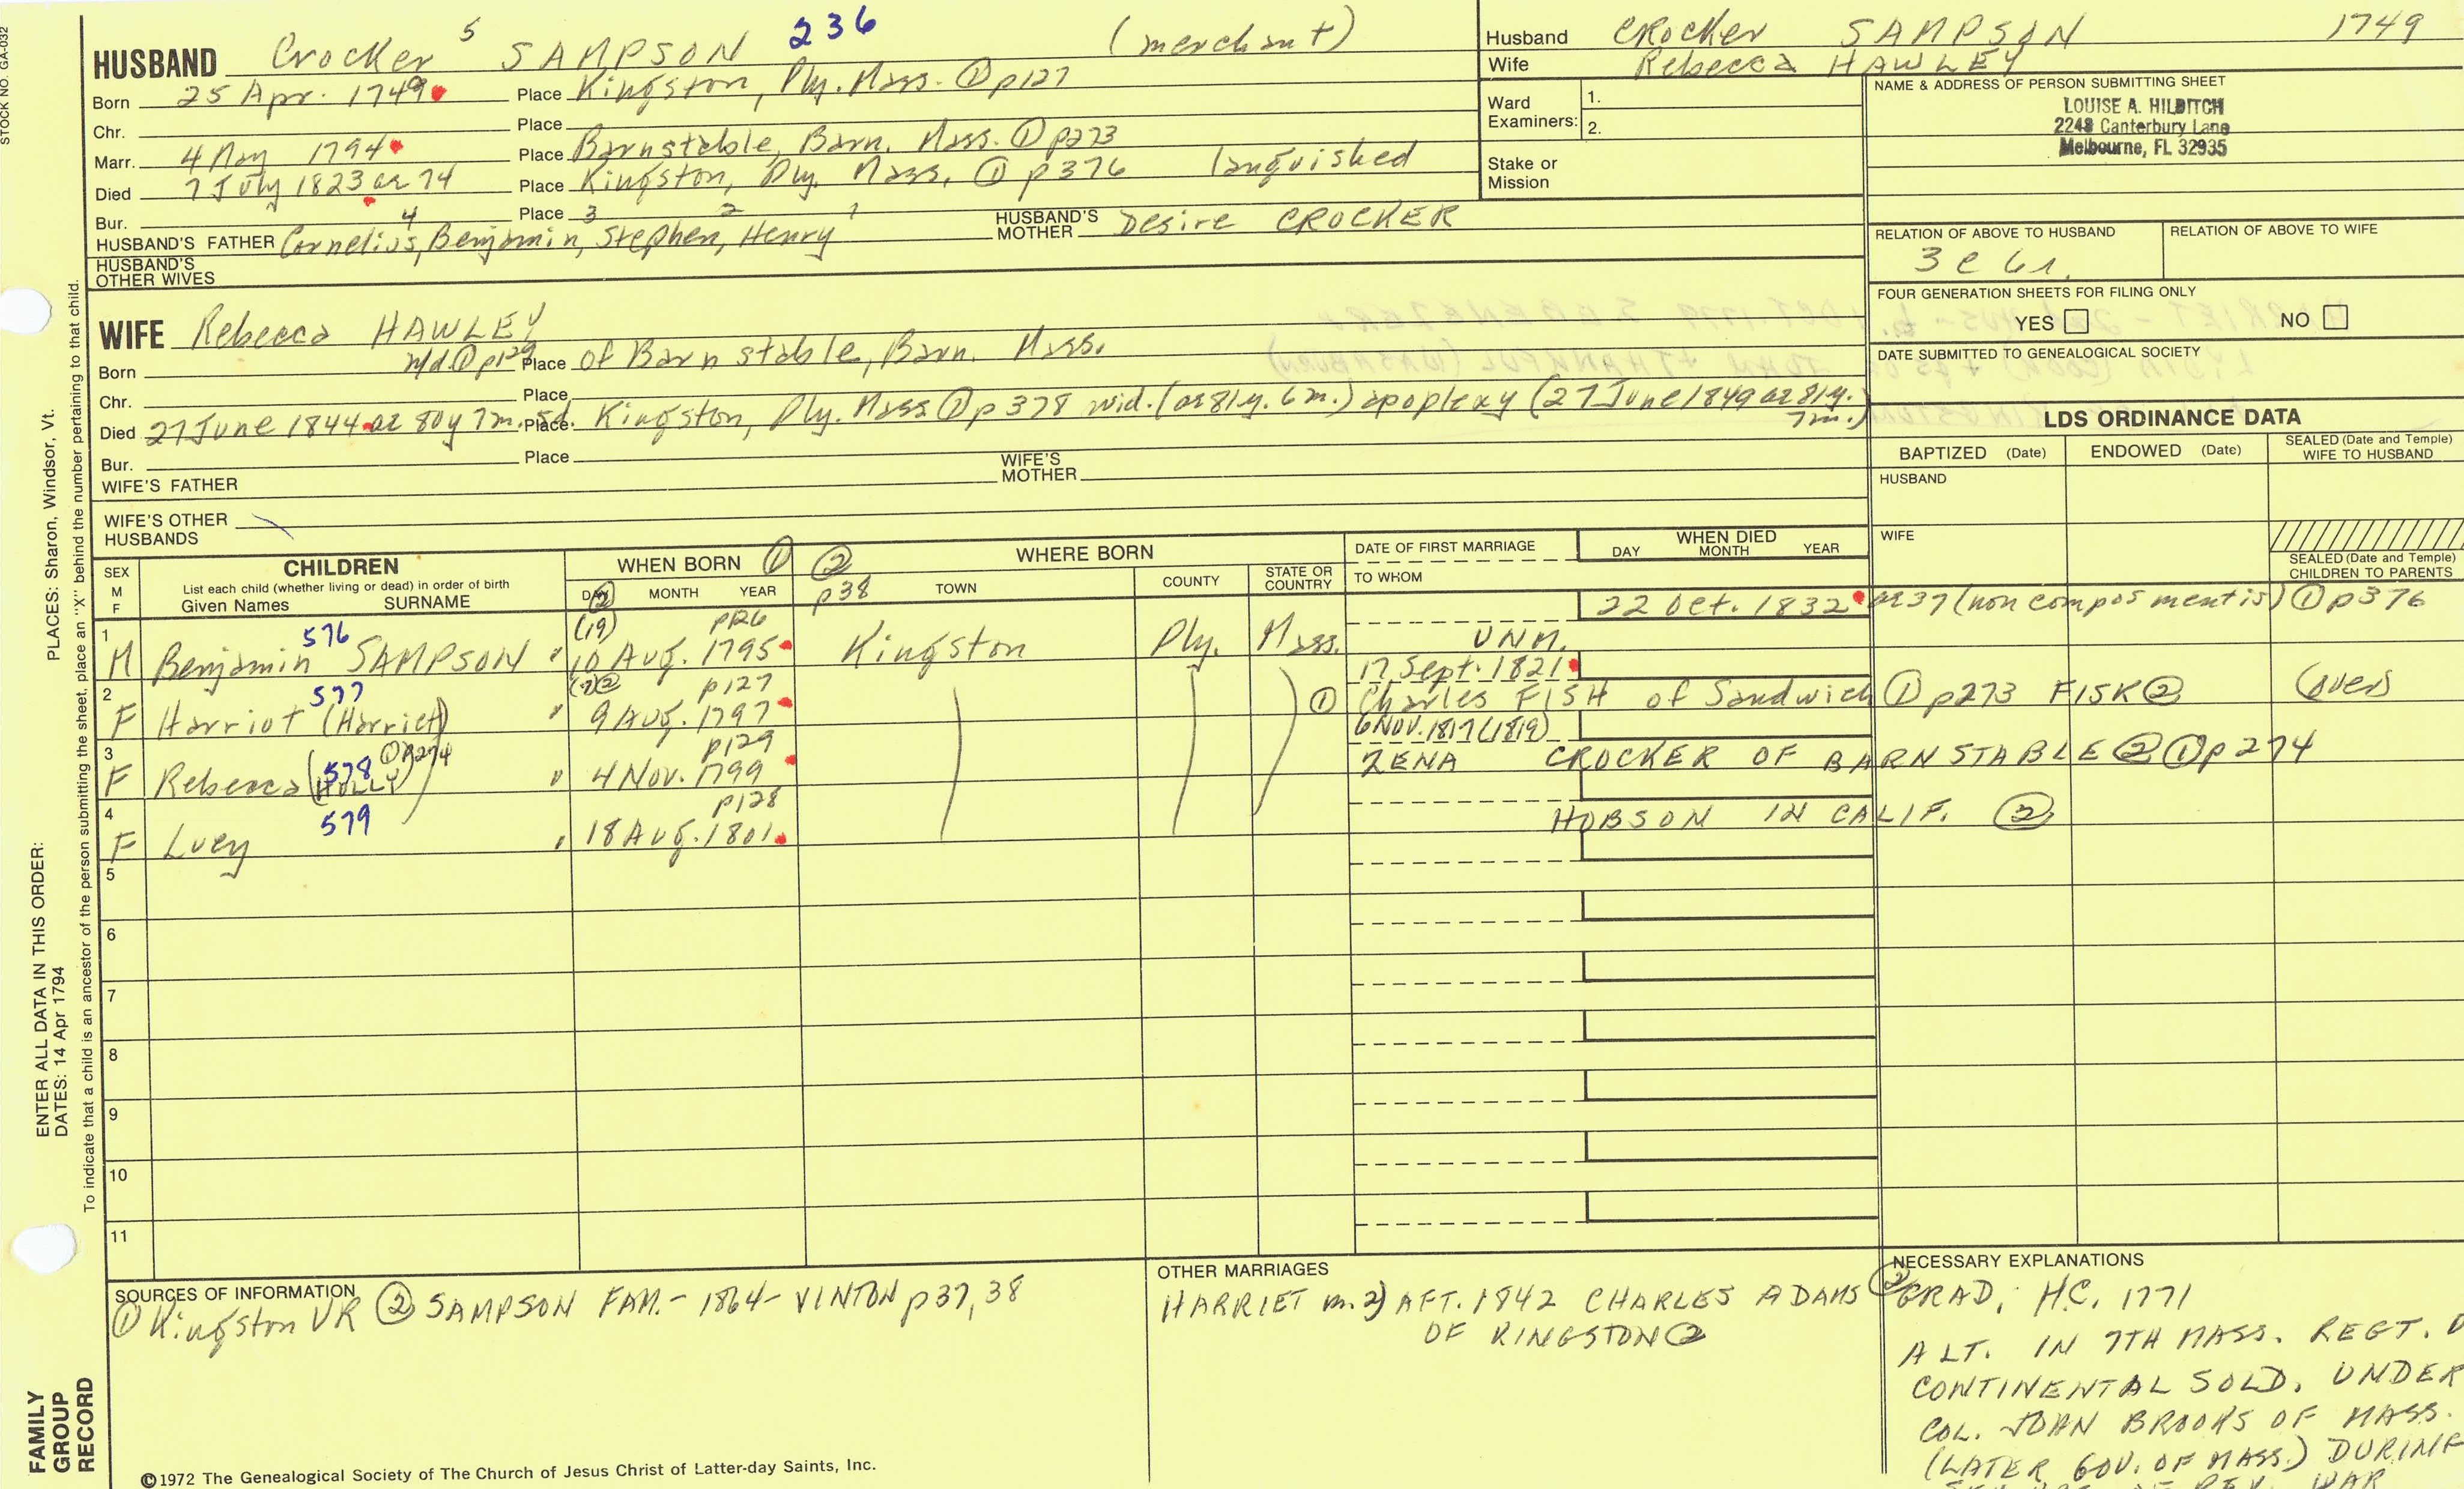 STOCK NO. GA-032
HUSBAND Crocker 5 SAMPSON 236 (merchant)
Born 25 Apr. 1749 Place Kingston, Ply. Mass. ① p127
Chr. Place
Marr. 4 May 1794 Place Barnstable, Barn. Mass. ① p273
Died 7 July 1823 ae 74 Place Kingston, Ply. Mass, ① p376 languished
Bur. Place
4 3 2 1
HUSBAND'S FATHER Cornelius, Benjamin, Stephen, Henry HUSBAND'S MOTHER Desire CROCKER
HUSBAND'S OTHER WIVES
Husband CROCKER SAMPSON 1749
Wife Rebecca HAWLEY
Ward Examiners: 1. 2.
Stake or Mission
NAME & ADDRESS OF PERSON SUBMITTING SHEET
LOUISE A. HILDITCH
2248 Canterbury Lane
Melbourne, FL 32935
RELATION OF ABOVE TO HUSBAND RELATION OF ABOVE TO WIFE
3 c 6 r.
FOUR GENERATION SHEETS FOR FILING ONLY
YES NO
DATE SUBMITTED TO GENEALOGICAL SOCIETY
WIFE Rebecca HAWLEY
Born Md. ① p129 Place of Barnstable, Barn. Mass.
Chr. Place
Died 27 June 1844 ae 80y 7m. 5d. Place Kingston, Ply. Mass ① p378 wid. (ae 81y. 6m.) apoplexy (27 June 1849 ae 81y. 7m.)
Bur. Place
WIFE'S FATHER WIFE'S MOTHER
WIFE'S OTHER HUSBANDS
LDS ORDINANCE DATA
BAPTIZED (Date) ENDOWED (Date) SEALED (Date and Temple) WIFE TO HUSBAND
HUSBAND
WIFE
SEALED (Date and Temple) CHILDREN TO PARENTS
SEX M F
CHILDREN
List each child (whether living or dead) in order of birth
Given Names SURNAME
WHEN BORN ①
DAY MONTH YEAR
② p38 WHERE BORN
TOWN COUNTY STATE OR COUNTRY
DATE OF FIRST MARRIAGE
TO WHOM
WHEN DIED
DAY MONTH YEAR
1 M Benjamin SAMPSON 576 " ② (19) PR6 10 Aug. 1795 Kingston Ply. Mass. UNM. 22 Oct. 1832 ae 37 (non compos mentis) ① p376
2 F Harriot (Harriet) 577 " (7) ② p127 9 Aug. 1797 17 Sept. 1821 ① Charles FISH of Sandwich ① p273 FISK ② (over)
3 F Rebecca (HOLLY) 578 ① p274 " p129 4 Nov. 1799 6 NOV. 1817 (1819) ZENA CROCKER OF BARNSTABLE ② ① p274
4 F Lucy 579 " p128 18 Aug. 1801 HOBSON IN CALIF. ②
5
6
7
8
9
10
11
SOURCES OF INFORMATION
① Kingston VR ② SAMPSON FAM. - 1864 - VINTON p37, 38
OTHER MARRIAGES
HARRIET m. 2) AFT. 1842 CHARLES ADAMS
OF KINGSTON ②
NECESSARY EXPLANATIONS
② GRAD, H.C. 1771
A LT. IN 7TH MASS. REGT.
CONTINENTAL SOLD. UNDER
COL. JOHN BROOKS OF MASS.
(LATER GOV. OF MASS.) DURING
REV. WAR
PLACES: Sharon, Windsor, Vt.
ENTER ALL DATA IN THIS ORDER:
DATES: 14 Apr 1794
To indicate that a child is an ancestor of the person submitting the sheet, place an "X" behind the number pertaining to that child.
FAMILY GROUP RECORD
©1972 The Genealogical Society of The Church of Jesus Christ of Latter-day Saints, Inc.